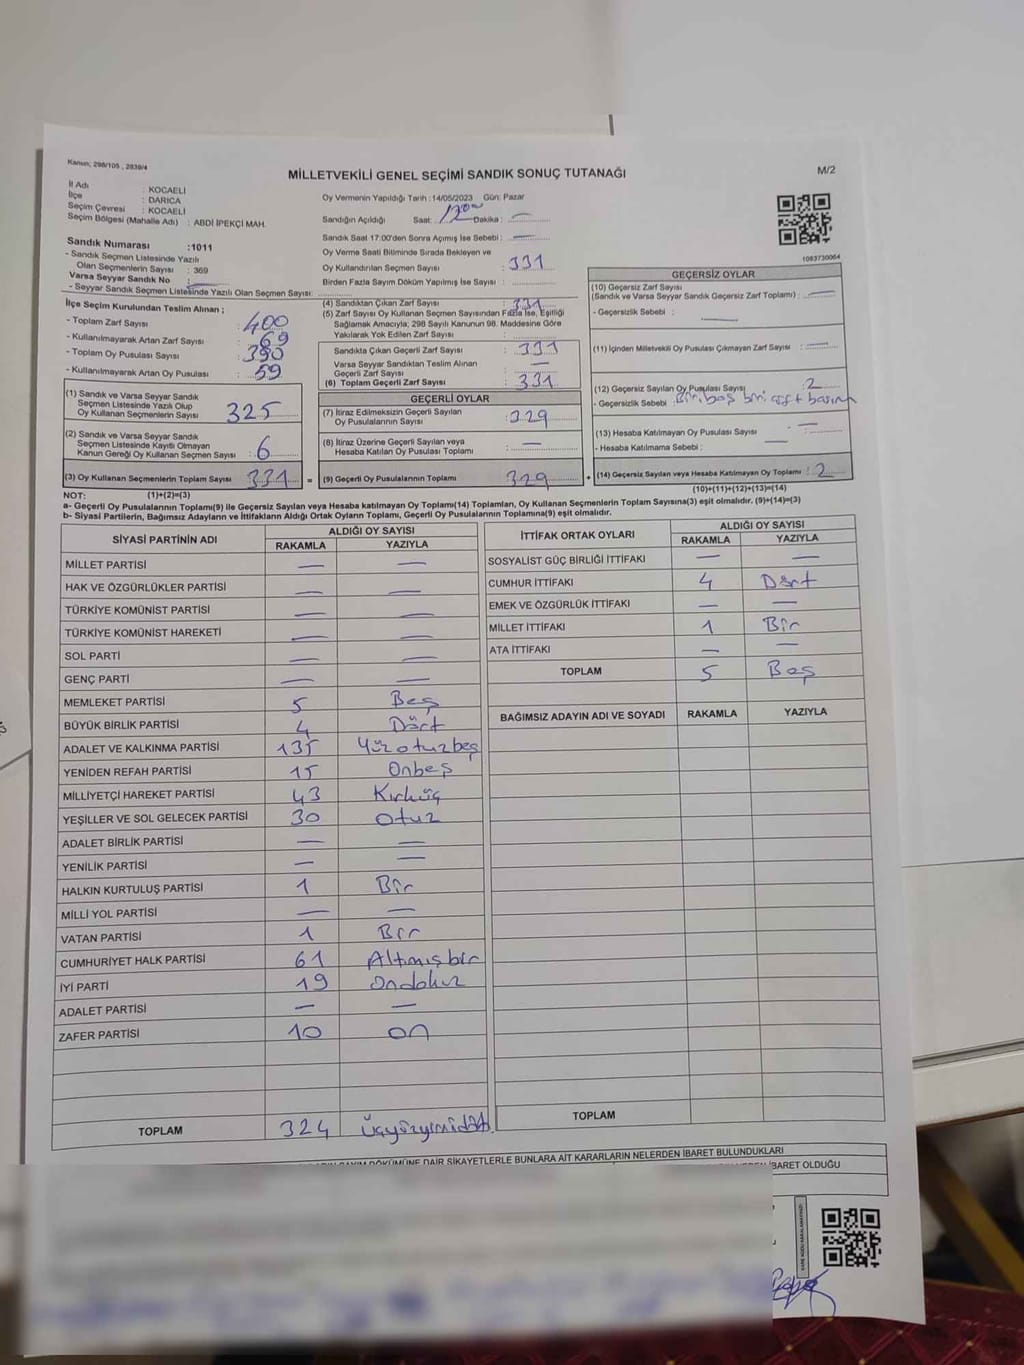 Kanun; 298/105 , 2839/4
MİLLETVEKİLİ GENEL SEÇİMİ SANDIK SONUÇ TUTANAĞI
M/2
İl Adı : KOCAELİ
İlçe : DARICA
Seçim Çevresi : KOCAELİ
Seçim Bölgesi (Mahalle Adı) : ABDİ İPEKÇİ MAH.
Sandık Numarası :1011
- Sandık Seçmen Listesinde Yazılı
Olan Seçmenlerin Sayısı : 369
Varsa Seyyar Sandık No :
- Seyyar Sandık Seçmen Listesinde Yazılı Olan Seçmen Sayısı:
Oy Vermenin Yapıldığı Tarih :14/05/2023 Gün: Pazar
Sandığın Açıldığı Saat: Dakika : —
Sandık Saat 17:00'den Sonra Açımış İse Sebebi : —
Oy Verme Saati Bitiminde Sırada Bekleyen ve
Oy Kullandırılan Seçmen Sayısı : 331
Birden Fazla Sayım Döküm Yapılmış İse Sayısı:
1083730064
İlçe Seçim Kurulundan Teslim Alınan ;
- Toplam Zarf Sayısı : 400
- Kullanılmayarak Artan Zarf Sayısı : 69
- Toplam Oy Pusulası Sayısı : 390
- Kullanılmayarak Artan Oy Pusulası : 59
(1) Sandık ve Varsa Seyyar Sandık
Seçmen Listesinde Yazılı Olup
Oy Kullanan Seçmenlerin Sayısı 325
(2) Sandık ve Varsa Seyyar Sandık
Seçmen Listesinde Kayıtlı Olmayan
Kanun Gereği Oy Kullanan Seçmen Sayısı : 6
(3) Oy Kullanan Seçmenlerin Toplam Sayısı : 331
(4) Sandıktan Çıkan Zarf Sayısı : 331
(5) Zarf Sayısı Oy Kullanan Seçmen Sayısından Fazla İse, Eşitliği
Sağlamak Amacıyla; 298 Sayılı Kanunun 98. Maddesine Göre
Yakılarak Yok Edilen Zarf Sayısı :
Sandıkta Çıkan Geçerli Zarf Sayısı : 331
Varsa Seyyar Sandıktan Teslim Alınan
Geçerli Zarf Sayısı : —
(6) Toplam Geçerli Zarf Sayısı : 331
GEÇERLİ OYLAR
(7) İtiraz Edilmeksizin Geçerli Sayılan
Oy Pusulalarının Sayısı : 329
(8) İtiraz Üzerine Geçerli Sayılan veya
Hesaba Katılan Oy Pusulası Toplamı : —
= (9) Geçerli Oy Pusulalarının Toplamı : 329
GEÇERSİZ OYLAR
(10) Geçersiz Zarf Sayısı
(Sandık ve Varsa Seyyar Sandık Geçersiz Zarf Toplamı) : —
- Geçersizlik Sebebi : —
(11) İçinden Milletvekili Oy Pusulası Çıkmayan Zarf Sayısı : —
(12) Geçersiz Sayılan Oy Pusulası Sayısı : 2
- Geçersizlik Sebebi : Biri boş biri
(13) Hesaba Katılmayan Oy Pusulası Sayısı : —
- Hesaba Katılmama Sebebi : —
+ (14) Geçersiz Sayılan veya Hesaba Katılmayan Oy Toplamı : 2
NOT: (1)+(2)=(3)
(10)+(11)+(12)+(13)=(14)
a- Geçerli Oy Pusulalarının Toplamı(9) ile Geçersiz Sayılan veya Hesaba katılmayan Oy Toplamı(14) Toplamları, Oy Kullanan Seçmenlerin Toplam Sayısına(3) eşit olmalıdır. (9)+(14)=(3)
b- Siyasi Partilerin, Bağımsız Adayların ve İttifakların Aldığı Ortak Oyların Toplamı, Geçerli Oy Pusulalarının Toplamına(9) eşit olmalıdır.
SİYASİ PARTİNİN ADI ALDIĞI OY SAYISI
RAKAMLA YAZIYLA
MİLLET PARTİSİ — —
HAK VE ÖZGÜRLÜKLER PARTİSİ — —
TÜRKİYE KOMÜNİST PARTİSİ — —
TÜRKİYE KOMÜNİST HAREKETİ — —
SOL PARTİ — —
GENÇ PARTİ — —
MEMLEKET PARTİSİ 5 Beş
BÜYÜK BİRLİK PARTİSİ 4 Dört
ADALET VE KALKINMA PARTİSİ 135 Yüzotuzbeş
YENİDEN REFAH PARTİSİ 15 Onbeş
MİLLİYETÇİ HAREKET PARTİSİ 43 Kırküç
YEŞİLLER VE SOL GELECEK PARTİSİ 30 Otuz
ADALET BİRLİK PARTİSİ — —
YENİLİK PARTİSİ — —
HALKIN KURTULUŞ PARTİSİ 1 Bir
MİLLİ YOL PARTİSİ — —
VATAN PARTİSİ 1 Bir
CUMHURİYET HALK PARTİSİ 61 Altmışbir
İYİ PARTİ 19 Ondokuz
ADALET PARTİSİ — —
ZAFER PARTİSİ 10 on
TOPLAM 324 Üçyüzyirmidört
İTTİFAK ORTAK OYLARI ALDIĞI OY SAYISI
RAKAMLA YAZIYLA
SOSYALİST GÜÇ BİRLİĞİ İTTİFAKI — —
CUMHUR İTTİFAKI 4 Dört
EMEK VE ÖZGÜRLÜK İTTİFAKI — —
MİLLET İTTİFAKI 1 Bir
ATA İTTİFAKI — —
TOPLAM 5 Beş
BAĞIMSIZ ADAYIN ADI VE SOYADI RAKAMLA YAZIYLA
TOPLAM
DÖKÜMÜNE DAİR ŞİKAYETLERLE BUNLARA AİT KARARLARIN NELERDEN İBARET BULUNDUKLARI
İBARET OLDUĞU